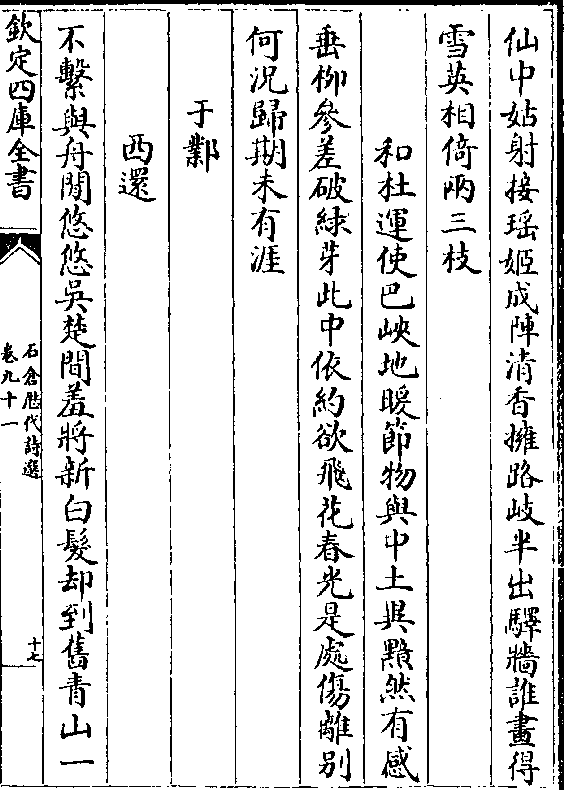 仙中姑射接瑶姬成陣清香擁路岐半出驛牆誰畫得
雪英相倚兩三枝
和杜運使巴峽地暖節物與中土異黯然有感
垂柳參差破緑芽此中依約欲飛花春光是處傷離别
何況歸期未有涯
于鄴
西還
不繫與舟閒悠悠吳楚間羞將新白髮却到舊青山一
欽定四庫全書
石倉歴代詩選
卷九十一
十七